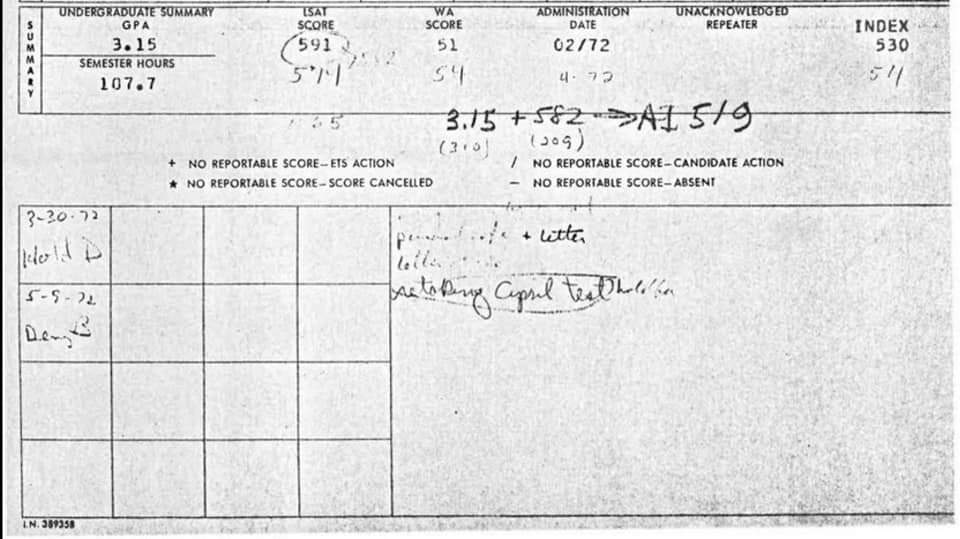 SUMMARY
UNDERGRADUATE SUMMARY
GPA
3.15
SEMESTER HOURS
107.7
LSAT
SCORE
591
WA
SCORE
51
54
ADMINISTRATION
DATE
02/72
4-72
UNACKNOWLEDGED
REPEATER
INDEX
530
3.15 + 582 ⇒ AI 519
(310) (209)
+ NO REPORTABLE SCORE—ETS ACTION
/ NO REPORTABLE SCORE—CANDIDATE ACTION
★ NO REPORTABLE SCORE—SCORE CANCELLED
— NO REPORTABLE SCORE—ABSENT
3-30-72
Hold D
+ letter
retaking April test
5-9-72
Deny
I.N. 389358